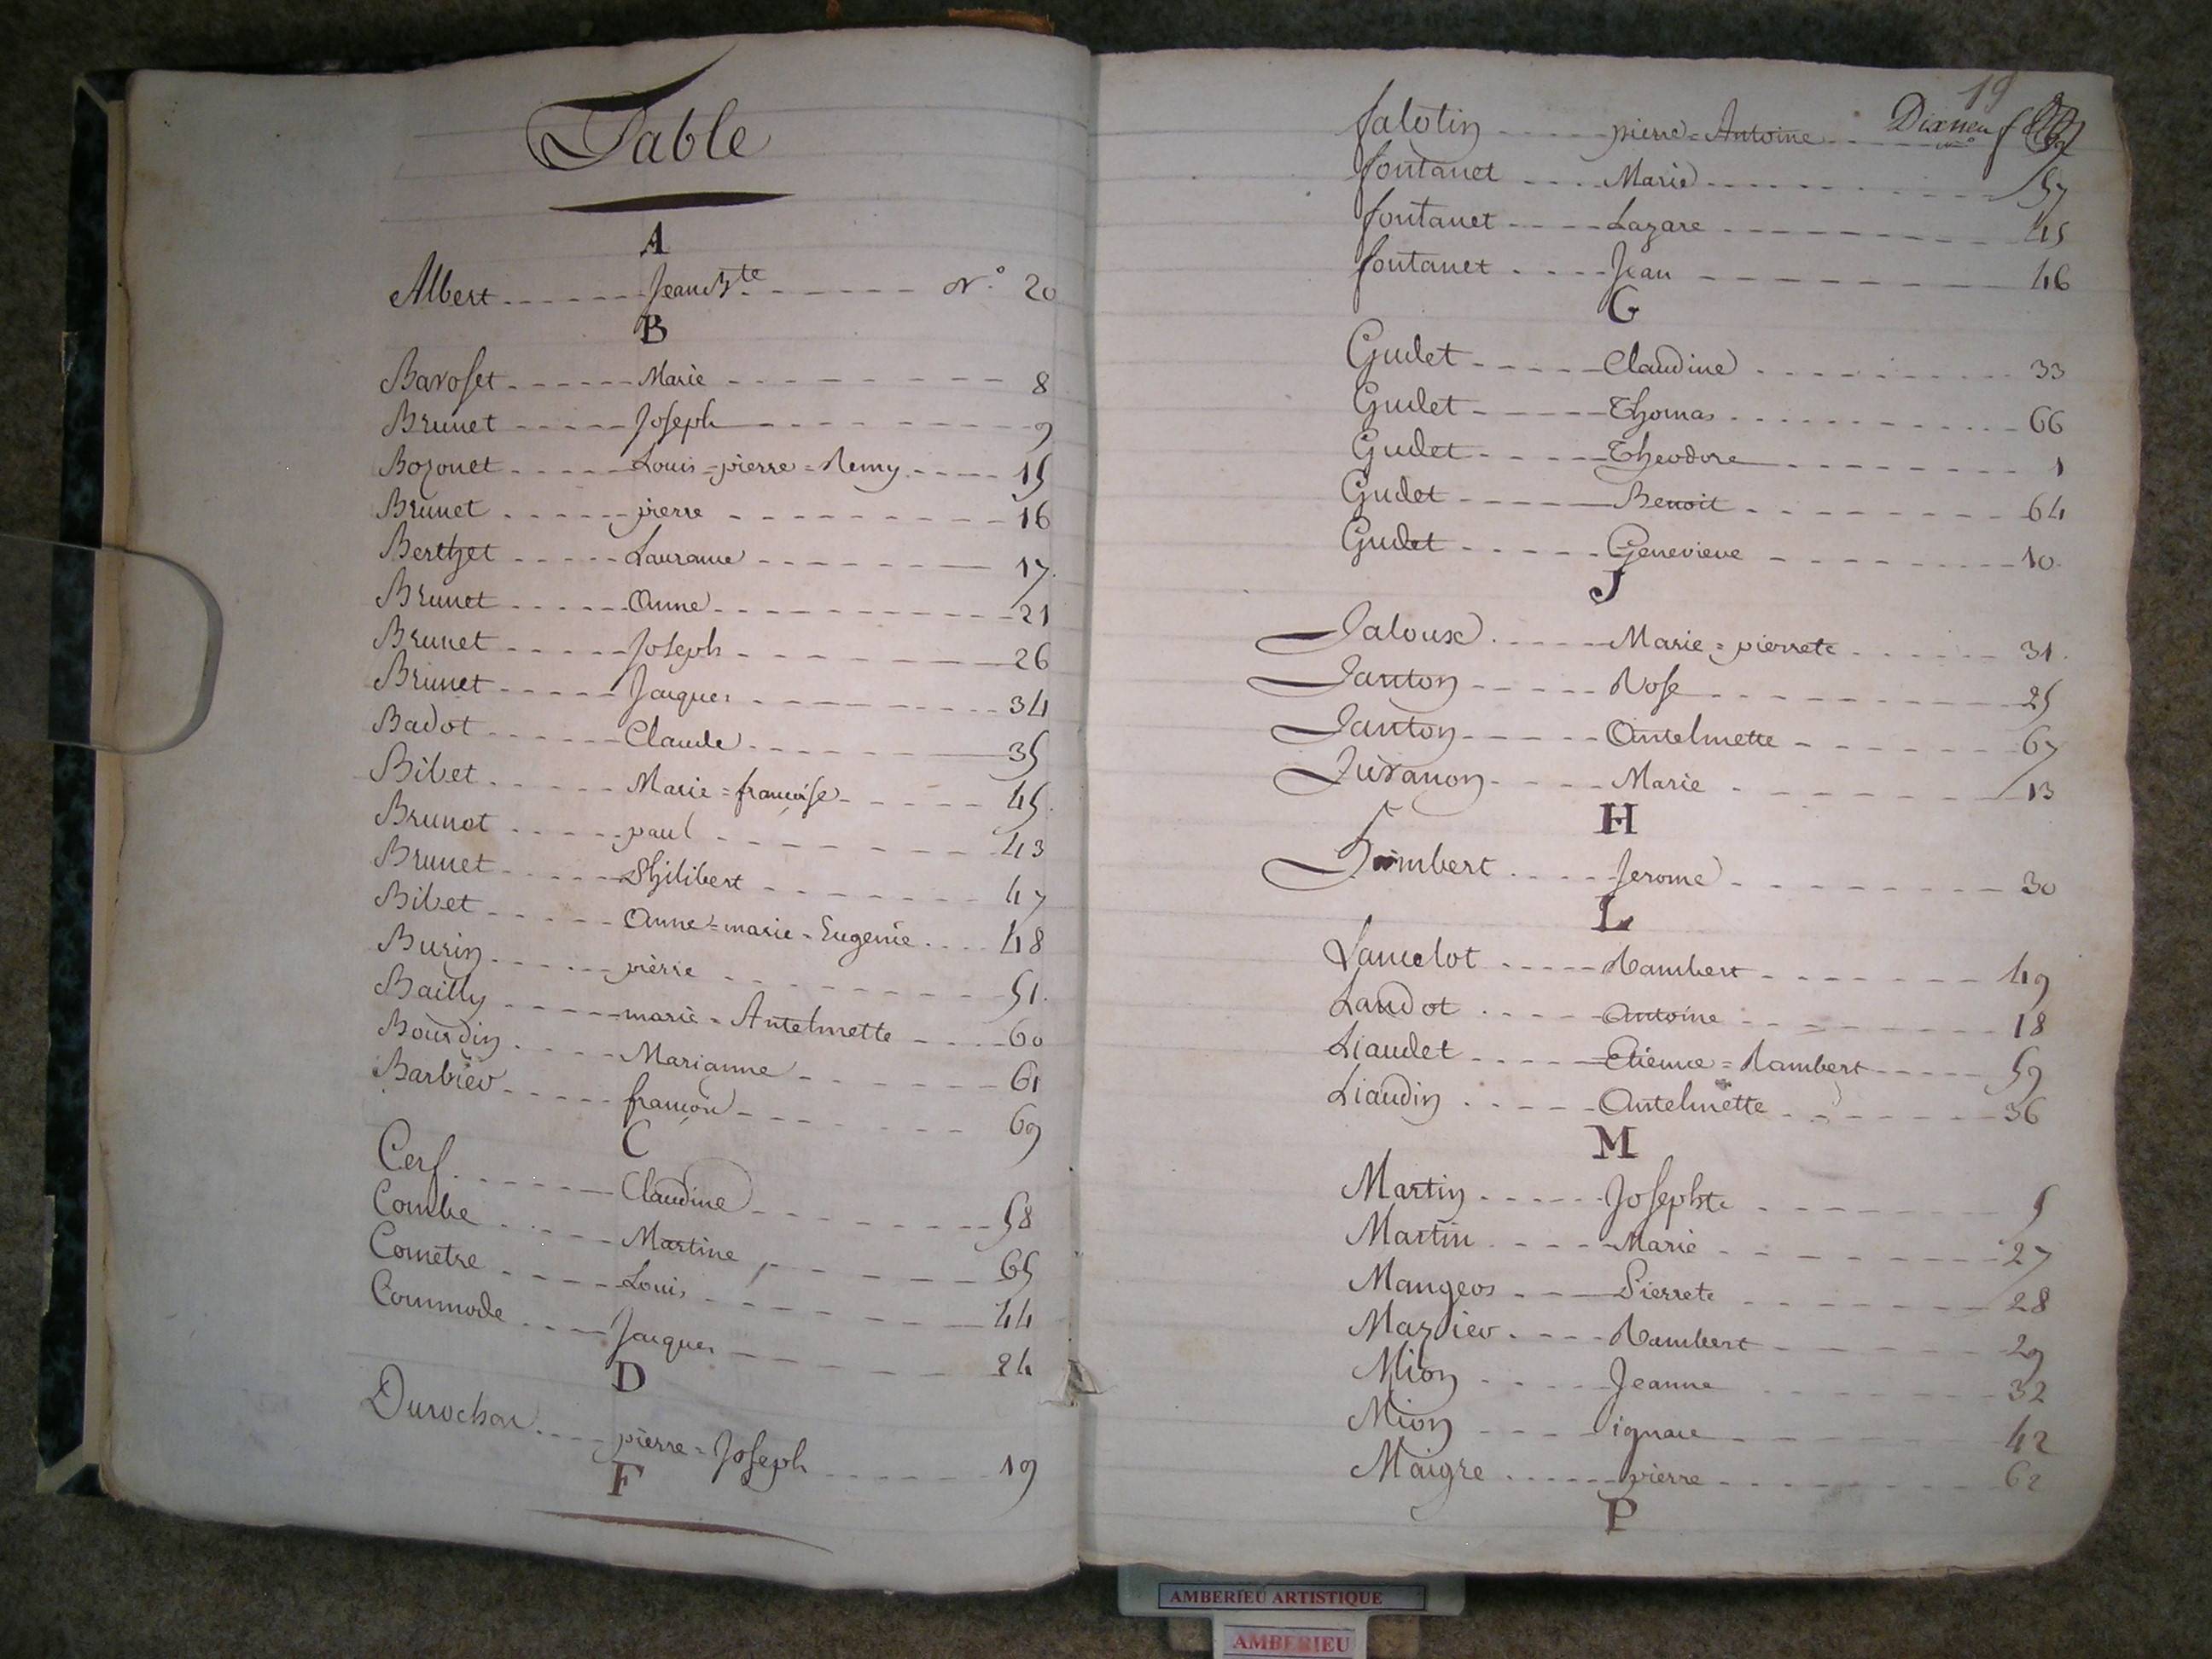 Table
A
Albert Jean Bte N.° 20
B
Baroset Marie 8
Brunet Joseph 9
Bozonet Louis=pierre=Remy 15
Brunet pierre 16
Berthet Laurance 17
Brunet Anne 21
Brunet Joseph 26
Brunet Jacques 34
Badot Claude 35
Bibet Marie=françoise 45
Brunot paul 43
Brunet Philibert 47
Bibet Anne=marie=Eugenie 48
Burin pierre 51
Bailly marie=Antelmette 60
Bourdin Marianne 61
Barbier françois 69
C
Cerf Claudine 58
Combe Martine 65
Cometre Louis 44
Commode Jacques 24
D
Durochat pierre=Joseph 19
F
19
Dixneuf
falotin pierre=Antoine
fontanet Marie 57
fontanet Lazare 45
fontanet Jean 46
G
Gudet Claudine 33
Gudet Thomas 66
Gudet Theodore 1
Gudet Benoit 64
Gudet Genevieve 10
J
Jaloux Marie=pierrete 31
Janton Rose 25
Janton Antelmette 67
Juvanon Marie 13
H
Humbert Jerome 30
L
Lancelot Rambert 49
Landot Antoine 18
Liaudet Etienne=Rambert 59
Liaudin Antelmette 36
M
Martin Josephte 5
Martin Marie 27
Mangeos Pierrete 28
Mazdier Rambert 29
Mion Jeanne 32
Mion ignace 42
Maigre pierre 62
P
AMBERIEU ARTISTIQUE
AMBERIEU